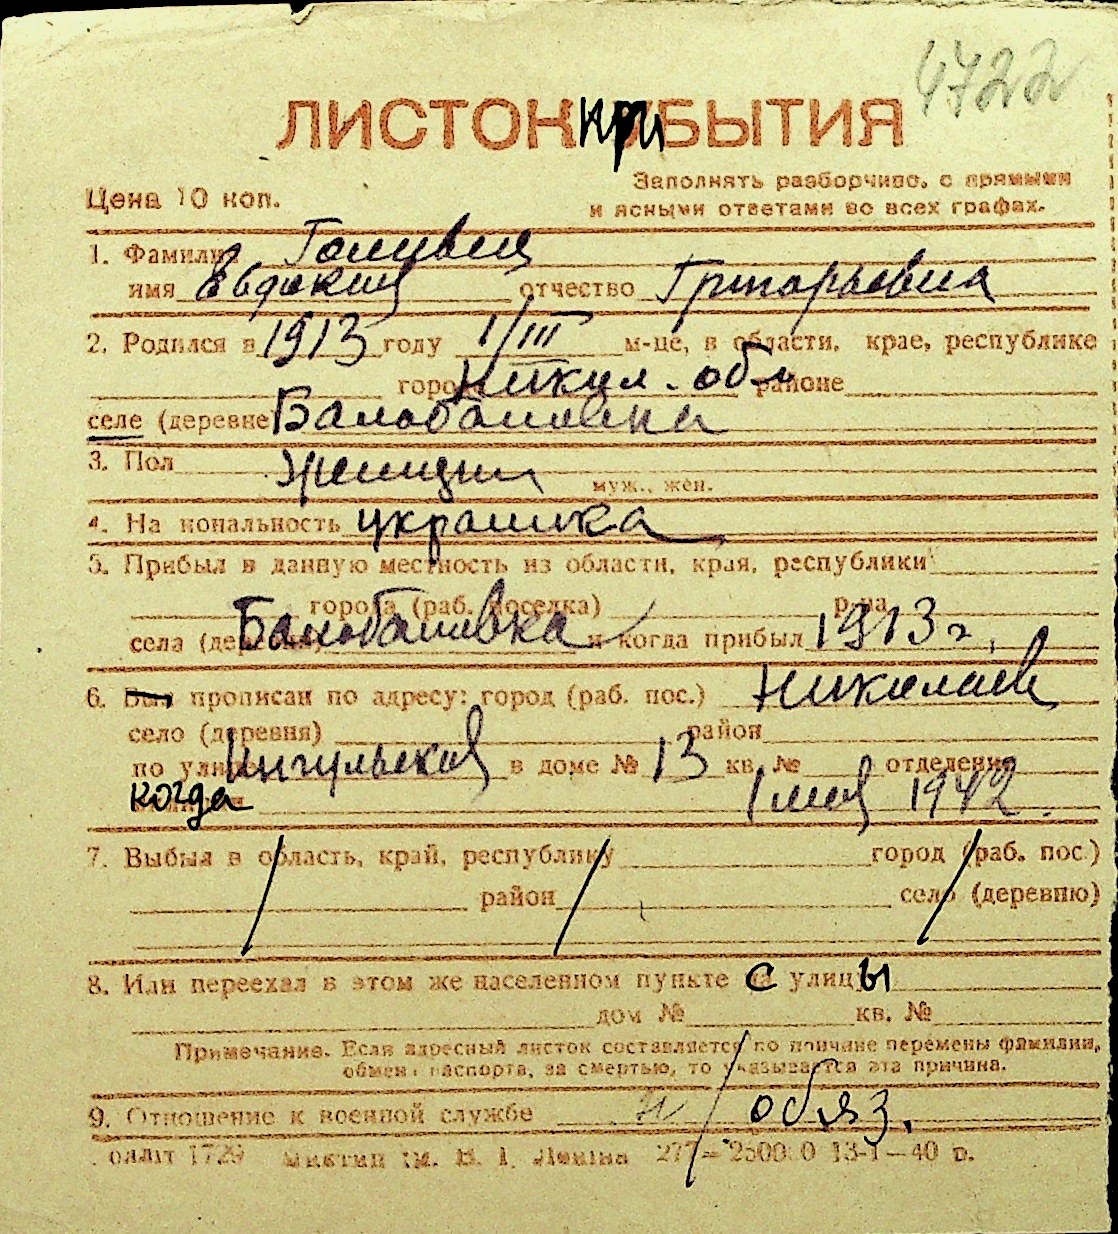 4722
ЛИСТОК ПРИБЫТИЯ
Цена 10 коп.
Заполнять разборчиво, с прямыми
и ясными ответами во всех графах.
1. Фамилия
имя Евдокия отчество Григорьевна
2. Родился в 1913 году 1/III м-це, в области, крае, республике
городе Никол. обл районе
селе (деревне) Балабановка
3. Пол женщин
муж., жен.
4. Национальность украинка
5. Прибыл в данную местность из области, края, республики
города (раб. поселка) р-на
села (деревни) Балабановка и когда прибыл 1913 г.
6. Был прописан по адресу: город (раб. пос.) Николаев
село (деревня) район
по улице Ингульская в доме № 13 кв. № отделение
когда 1 мая 1942.
7. Выбыл в область, край, республику город (раб. пос.)
район село (деревню)
8. Или переехал в этом же населенном пункте с улицы
дом № кв. №
Примечание. Если адресный листок составляется по причине перемены фамилии,
обмена паспорта, за смертью, то указывается эта причина.
9. Отношение к военной службе н/обяз.
1729 им. В. И. Ленина 277 13-I—40 г.